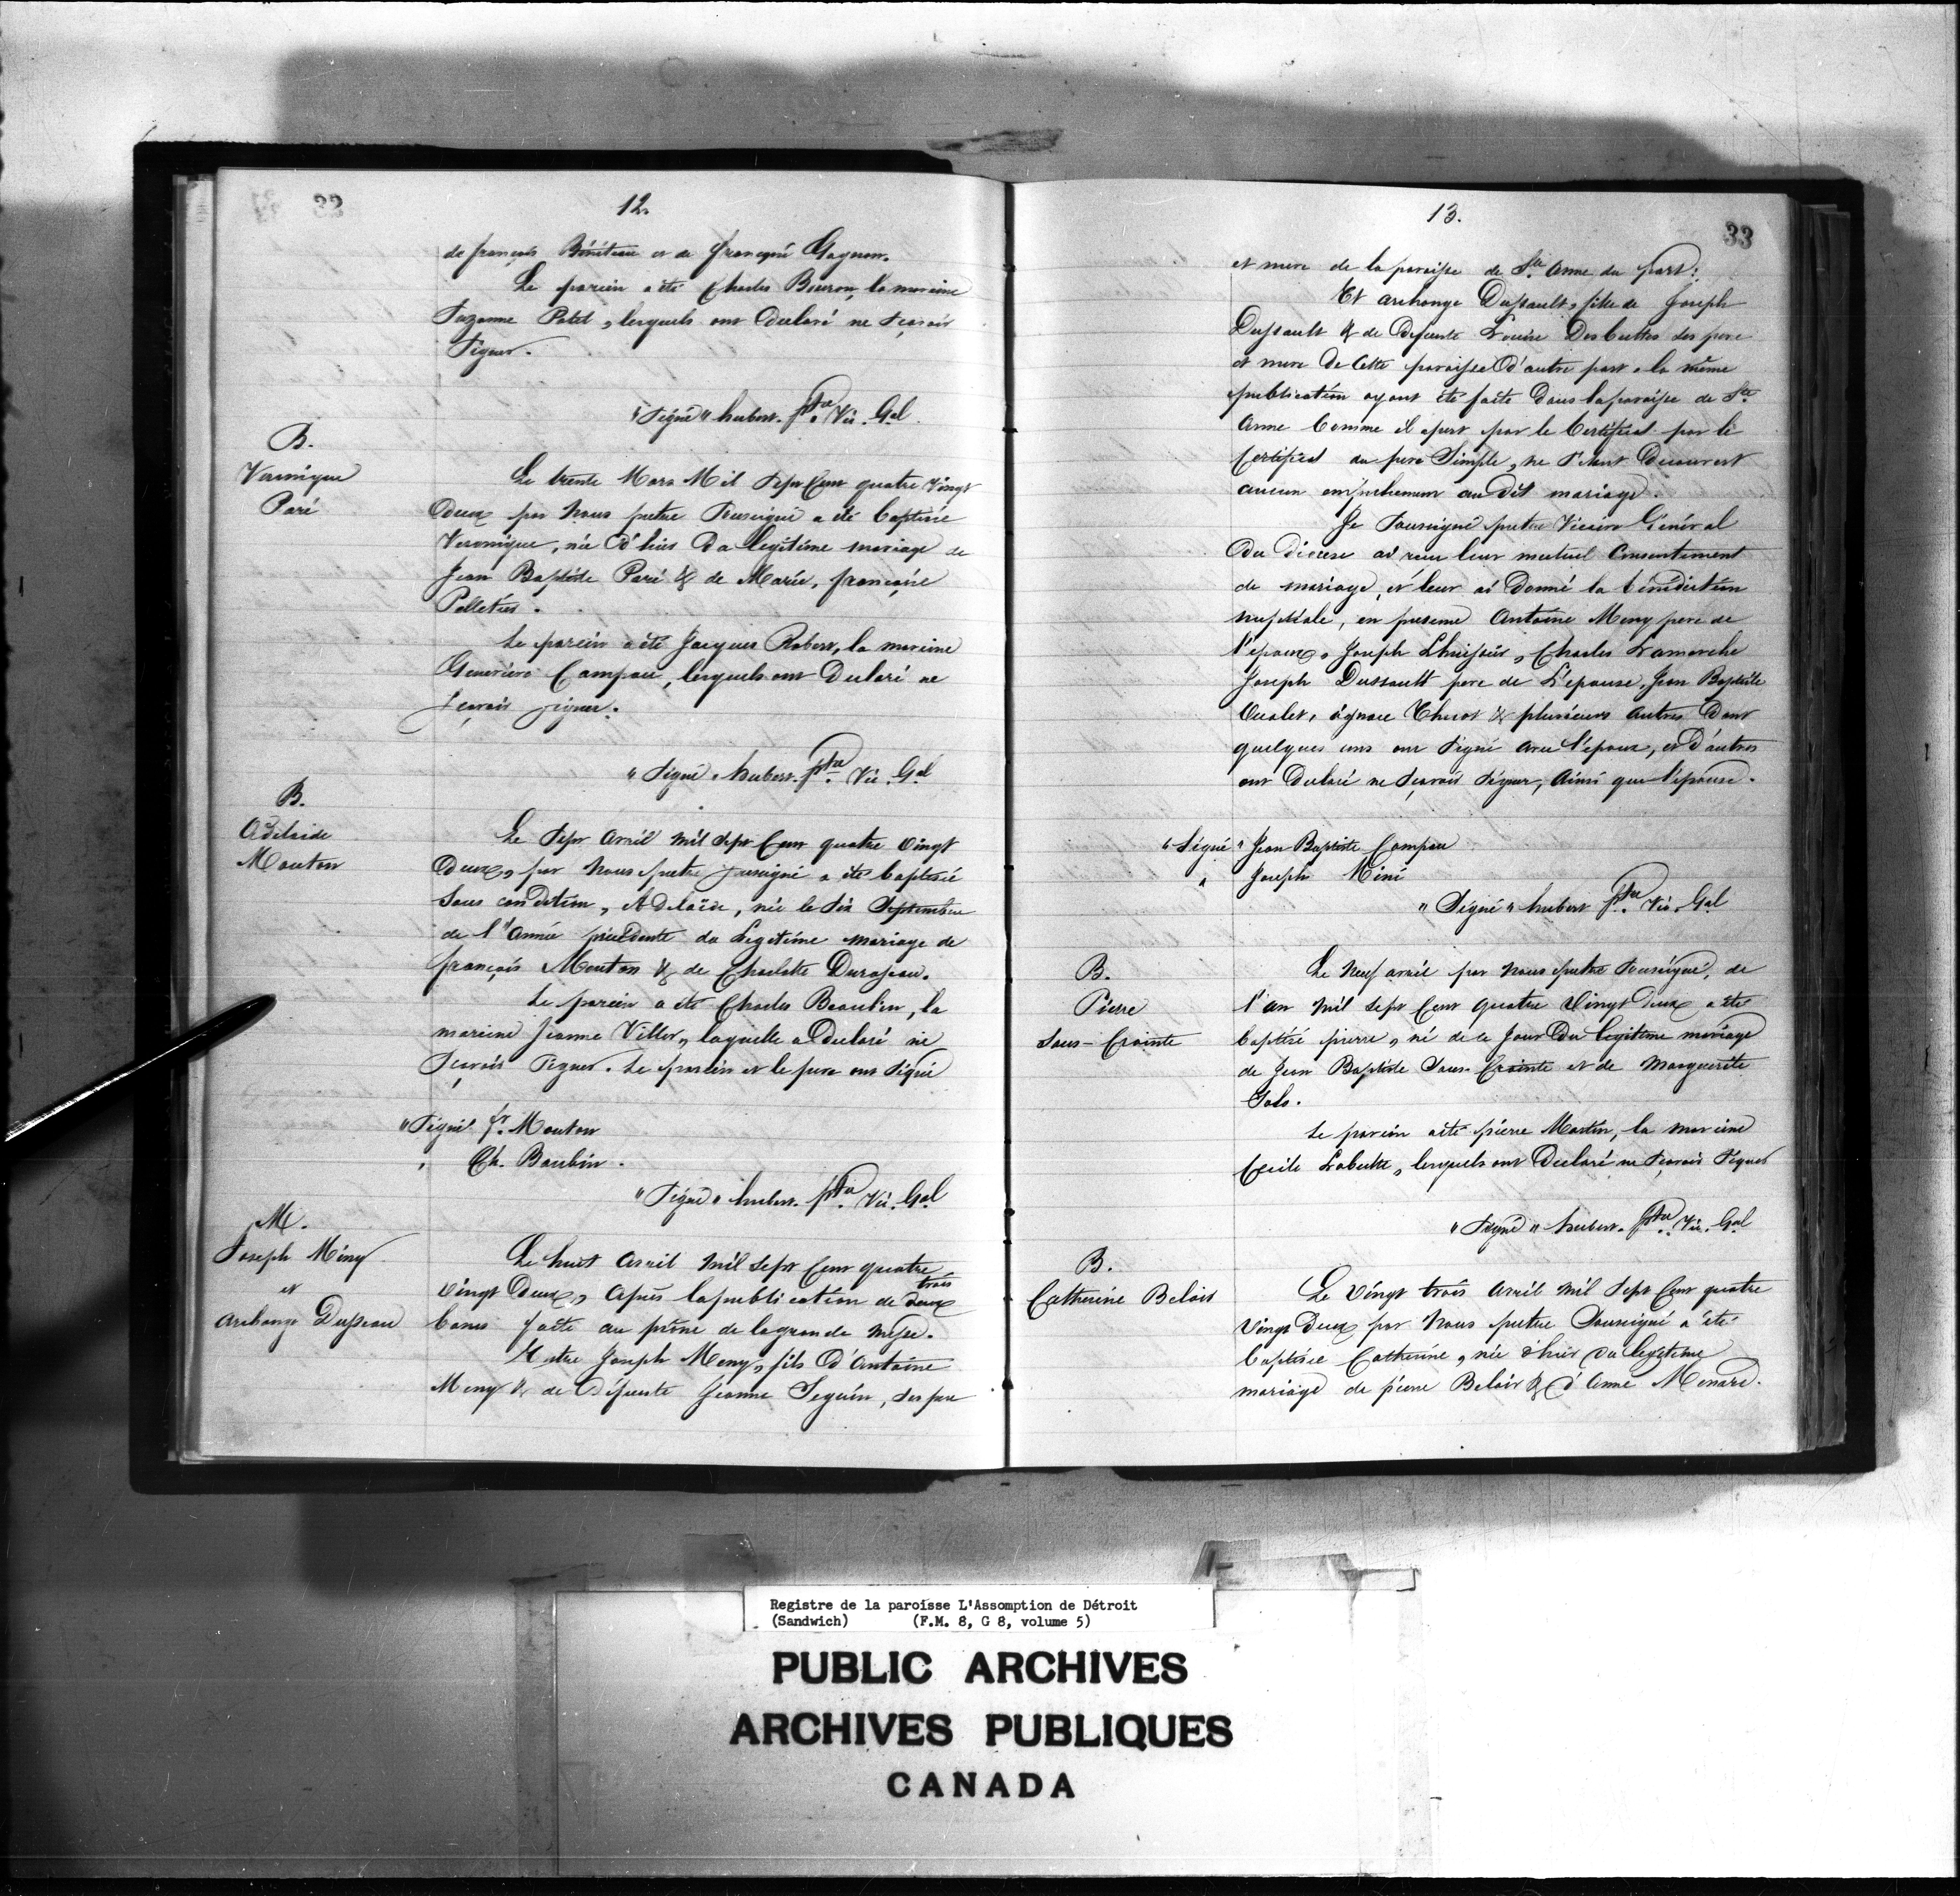 32
12.
de françois Bénéteau et de françoise Gagnon.
Le parein a été Charles Buron, la mareine
Suzanne Patel, lesquels ont declaré ne sçavoir
signer.
"Signé" hubert. ptre Vic. Gal
B.
Veronique
Paré
Le trente Mars Mil Sept Cent quatre Vingt
deux par Nous pretre Soussigné a été baptisée
Veronique, née d'hier du legitime mariage de
Jean Baptiste Paré & de Marie, françoise
Pelletier.
Le parein a été Jacques Robert, la mareine
Genevieve Campau, lesquels ont declaré ne
sçavoir signer.
"Signé" hubert. ptre Vic. Gal
B.
Adelaide
Mouton
Le Sept avril mil Sept Cent quatre vingt
deux, par Nous pretre soussigné a été baptisée
sous condition, Adelaïde, née le six Septembre
de l'Année précédente du Legitime mariage de
françois Mouton & de Charlotte Durosseau.
Le parein a été Charles Beaubin, la
mareine Jeanne Viller, laquelle a declaré ne
sçavoir signer. Le parein et le pere ont signé
"Signé" fr. Mouton
" Ch. Baubin.
"Signé" hubert. ptre Vic. Gal
M.
Joseph Mény
et
Archange Dusseau
Le huit avril Mil Sept Cent quatre
vingt Deux, après la publication de deux trois
bancs faite au prône de la grande messe.
Entre Joseph Meny, fils d'Antoine
Meny & de défunte Jeanne Seguin, ses pere
13.
33
et mere de la paroisse de Ste Anne du part:
Et archange Dussault, fille de Joseph
Dussault & de Defunte Louise Desbuttes ses pere
et mere de Cette paroisse d'autre part, la même
publication ayant été faite dans la paroisse de Ste
Anne Comme il apert par le Certificat par le
Certificat du pere Simple, ne s'étant decouvert
aucun empechement au dit mariage.
Je Soussigné pretre Vicaire Général
du diocese ai reçu leur mutuel Consentement
de mariage, et leur ai Donné la bénédiction
nuptiale, en presence Antoine Meny pere de
l'epoux, Joseph Lhuissier, Charles Lamarche
Joseph Dussault pere de L'epouse, Jean Baptiste
Ouelet, ignace Thuot & plusieurs autres Dont
quelques uns ont signé avec l'epoux, et D'autres
ont declaré ne sçavoir signer, Ainsi que l'épouse.
"Signé" Jean Baptiste Campau
" Joseph Mini
"Signé" hubert ptre Vic. Gal
B.
Pierre
Sans-Crainte
Le Neuf avril par Nous pretre soussigné, de
l'an Mil Sept Cent quatre Vingt deux a été
baptisé pierre, né de ce Jour Du legitime mariage
de Jean Baptiste Sans-Crainte et de Marguerite
Solo.
Le parein a été pierre Martin, la mareine
Cecile Labutte, lesquels ont Declaré ne sçavoir signer
"Signé" hubert. ptre Vic. Gal
B.
Catherine Belair
Le Vingt trois Avril Mil Sept Cent quatre
Vingt Deux par Nous pretre Soussigné a été
baptisée Catherine, née d'hier du legitime
mariage de pierre Belair & d'Anne Menard.
Registre de la paroisse L'Assomption de Détroit
(Sandwich) (F.M. 8, G 8, volume 5)
PUBLIC ARCHIVES
ARCHIVES PUBLIQUES
CANADA